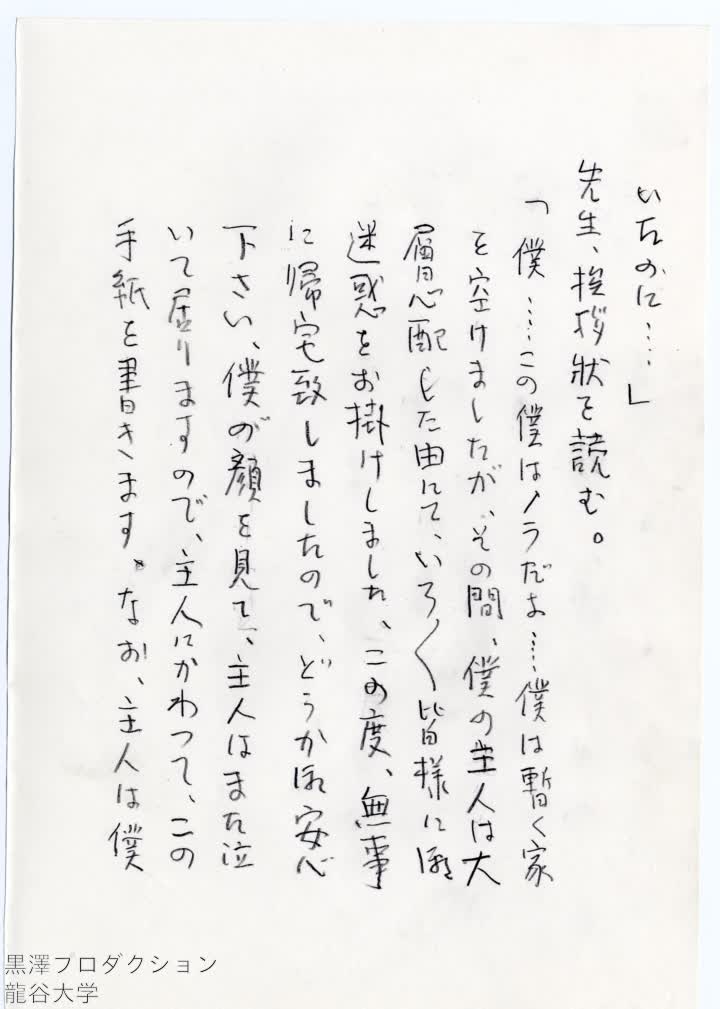 いたのに‥‥」
先生、挨拶状を読む。
「僕‥‥この僕はノラだよ‥‥僕は暫く家
を空けましたが、その間、僕の主人は大
層心配した由にて、いろ〱皆様に御
迷惑をお掛けしました、この度、無事
に帰宅致しましたので、どうか御安心
下さい、僕の顔を見て、主人はまた泣
いて居りますので、主人にかわつて、この
手紙を書きます。なお、主人は僕
黒澤プロダクション
龍谷大学